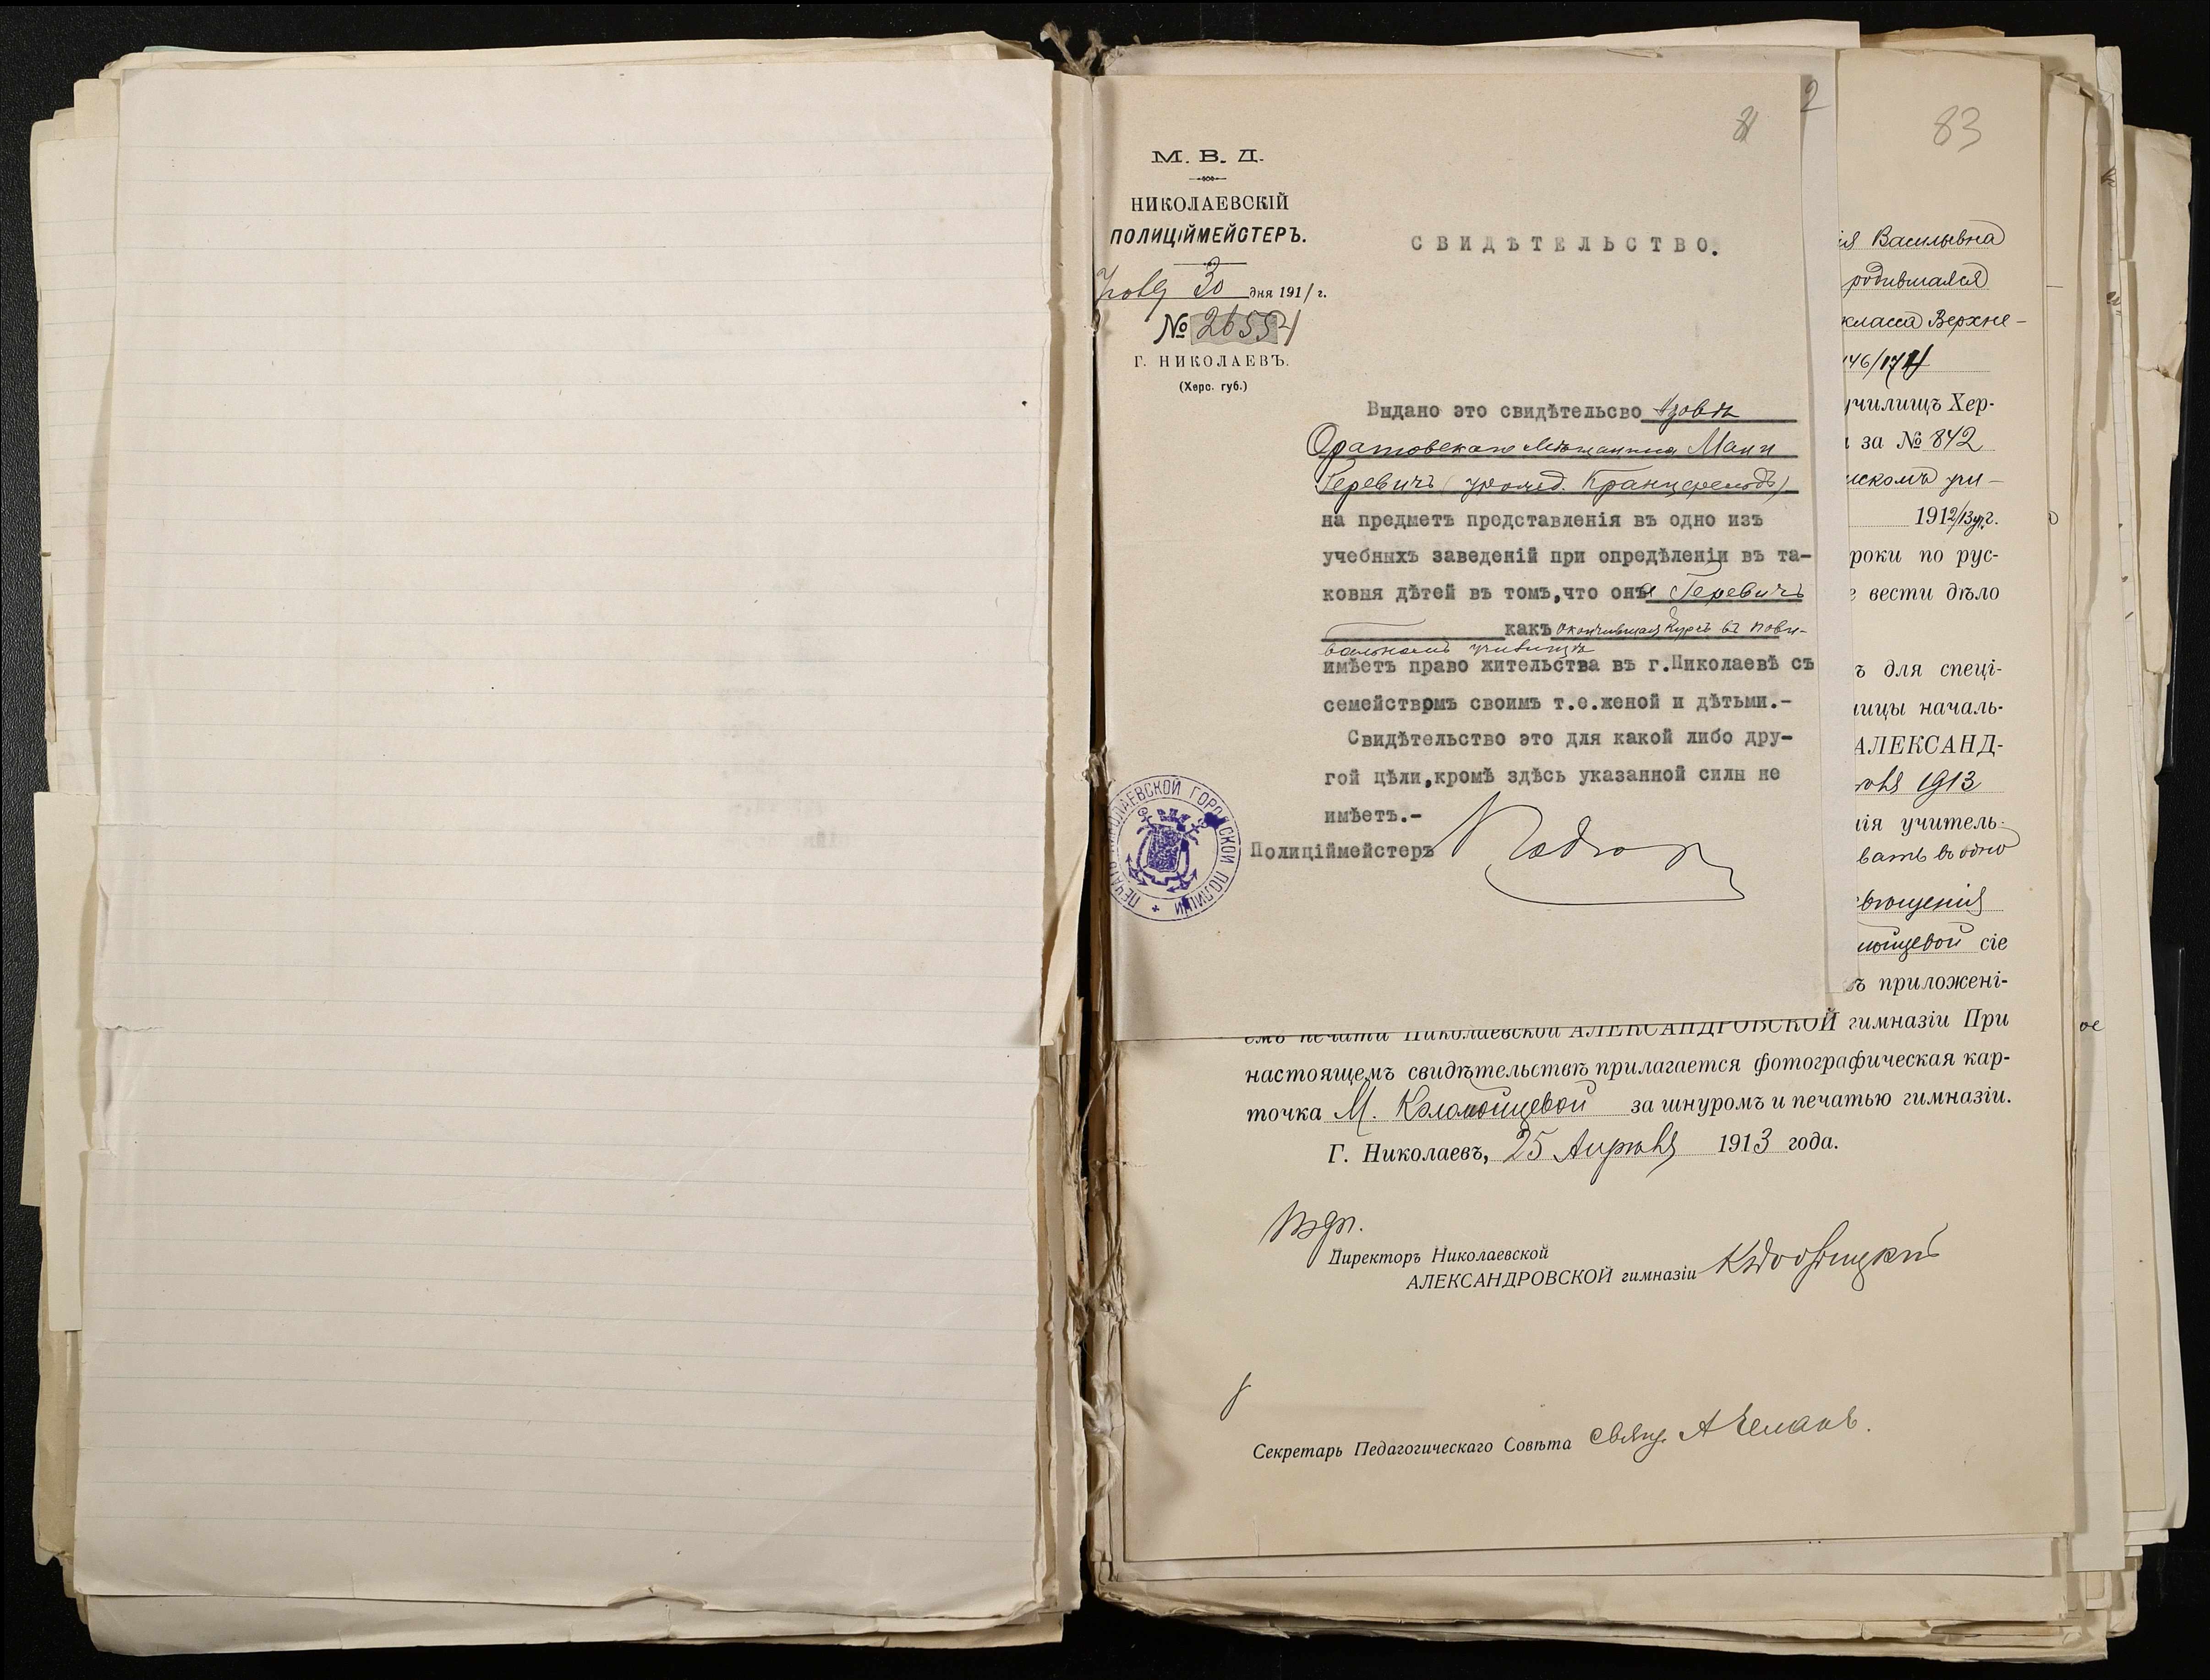 8
2
83
М. В. Д.
НИКОЛАЕВСКІЙ
ПОЛИЦІЙМЕЙСТЕРЪ.
30 дня 1911 г.
№ 26554
Г. НИКОЛАЕВЪ.
(Херс. губ.)
СВИДѢТЕЛЬСТВО.
Выдано это свидѣтельсво вдовѣ
Оратовскаго мѣщанина Мани
Геревичъ (урожд. Кранцфельдъ)
на предметъ представленія въ одно изъ
учебныхъ заведеній при опредѣленіи въ та-
ковыя дѣтей въ томъ,что она Геревичъ
какъ окончившая курсъ въ пови-
вальномъ училищѣ
имѣетъ право жительства въ г.Николаевѣ съ
семействомъ своимъ т.е.женой и дѣтьми.-
Свидѣтельство это для какой либо дру-
гой цѣли,кромѣ здѣсь указанной силы не
имѣетъ.-
Полиціймейстеръ
ПЕЧАТЬ НИКОЛАЕВСКОЙ ГОРОДСКОЙ ПОЛИЦІИ
ія Васильевна
родившаяся
класса Верхне-
146/174
училищъ Хер-
за № 842
нскомъ учи-
1912/13 уч. г.
роки по рус-
е вести дѣло
ъ для спеці-
ницы началь-
АЛЕКСАНД-
1913
нія учитель-
вать въ одно
свѣщенія
мойцевой сіе
ъ приложені-
емъ печати Николаевской АЛЕКСАНДРОВСКОЙ гимназіи При
настоящемъ свидѣтельствѣ прилагается фотографическая кар-
точка М. Коломойцевой за шнуромъ и печатью гимназіи.
Г. Николаевъ, 25 Апрѣля 1913 года.
Директоръ Николаевской
АЛЕКСАНДРОВСКОЙ гимназіи
Секретарь Педагогическаго Совѣта свящ. А